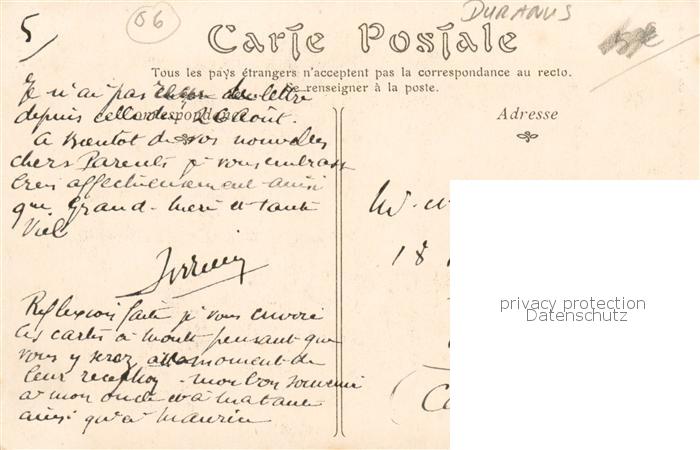 5/
06
DURANUS
Carte Postale
Tous les pays étrangers n'acceptent pas la correspondance au recto.
Se renseigner à la poste.
Correspondance
Adresse
Je n'ai pas de lettre
depuis celle du 26 Août.
A Bientot de vos nouvelles
chers Parents je vous embrasse
bien affectueusement ainsi
que Grand-Mère et tante
Reflexion faite je vous envoie
les cartes à pensant que
vous y serez au moment de
leur reception. mon bon souvenir
à mon oncle et à ma tante
ainsi qu'à Maurice
18
privacy protection
Datenschutz